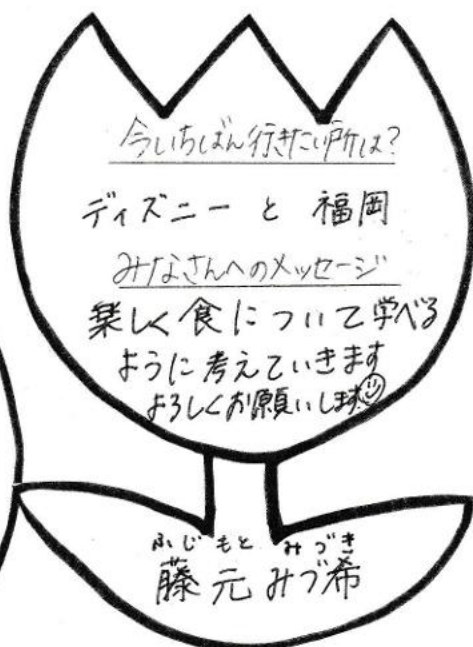 今いちばん行きたい所は?
ディズニーと福岡
みなさんへのメッセージ
楽しく食について学べる
ように考えていきます
よろしくお願いします
ふじもと みづき
藤元みづ希